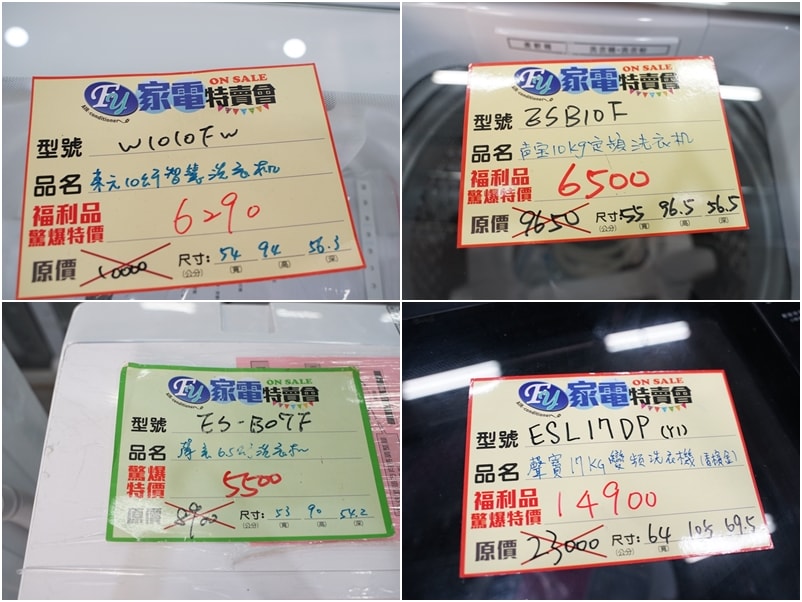 FU 家電特賣會 ON SALE
air conditioner
型號 W1010FW
品名 東元10公斤智慧洗衣机
福利品
驚爆特價 6290
原價 10000 尺寸: 54 94 56.3
(公分) (寬) (高) (深)
FU 家電特賣會 ON SALE
air conditioner
型號 ESB10F
品名 声宝10kg定頻洗衣机
福利品
驚爆特價 6500
原價 9650 尺寸: 55 96.5 56.5
(公分) (寬) (高) (深)
FU 家電特賣會 ON SALE
air conditioner
型號 ES-B07F
品名 6.5公斤洗衣机
驚爆
特價 5500
原價 8900 尺寸: 53 90 54.2
(公分) (寬) (高) (深)
FU 家電特賣會 ON SALE
air conditioner
型號 ESL17DP (Y1)
品名 聲寶17KG變頻洗衣機
福利品
驚爆特價 14900
原價 23000 尺寸: 64 105 69.5
(公分) (寬) (高) (深)